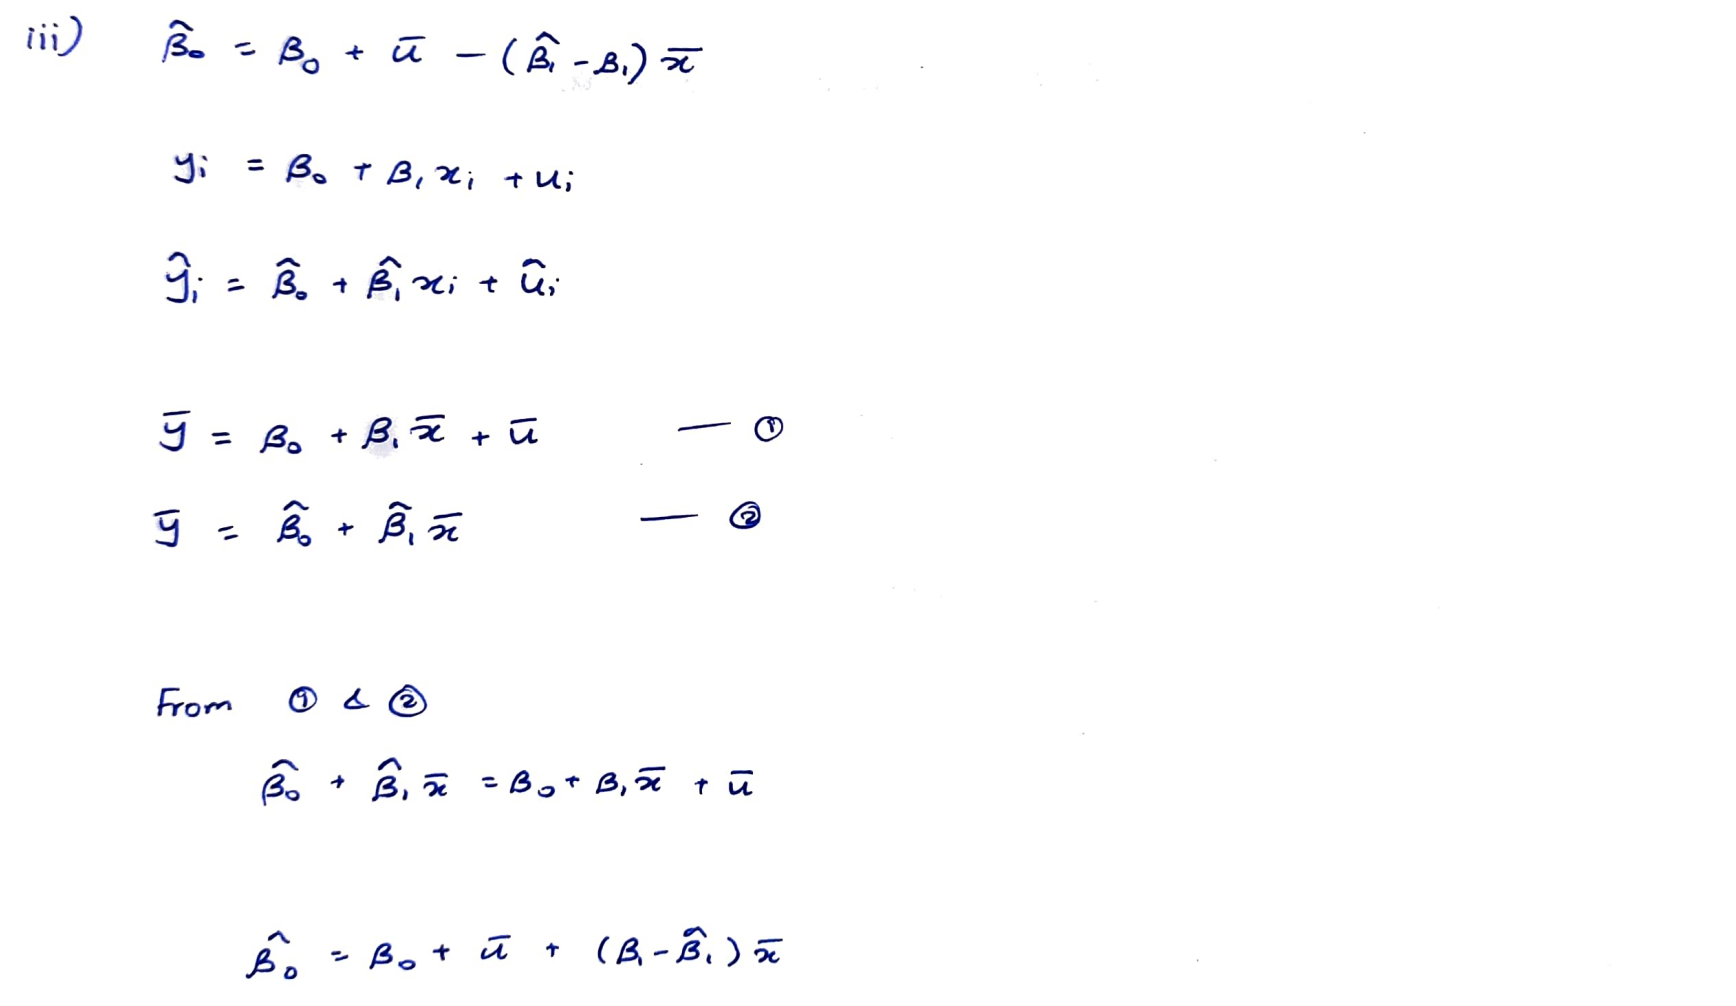 iii) β̂₀ = β₀ + ū − (β̂₁ − β₁) x̄
yᵢ = β₀ + β₁ xᵢ + uᵢ
ŷᵢ = β̂₀ + β̂₁ xᵢ + ûᵢ
ȳ = β₀ + β₁ x̄ + ū — ①
ȳ = β̂₀ + β̂₁ x̄ — ②
From ① & ②
β̂₀ + β̂₁ x̄ = β₀ + β₁ x̄ + ū
β̂₀ = β₀ + ū + (β₁ − β̂₁) x̄